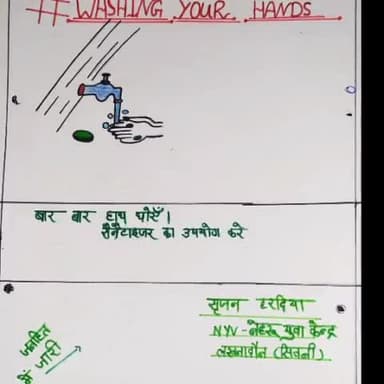 # WASHING YOUR HANDS
बार बार हाथ धोएँ।
सैनेटाइजर का उपयोग करे
सृजन टरदिया
NYV-नेहरू युवा केन्द्र
लखनादौन (सिवनी)
जनहित
में जारी